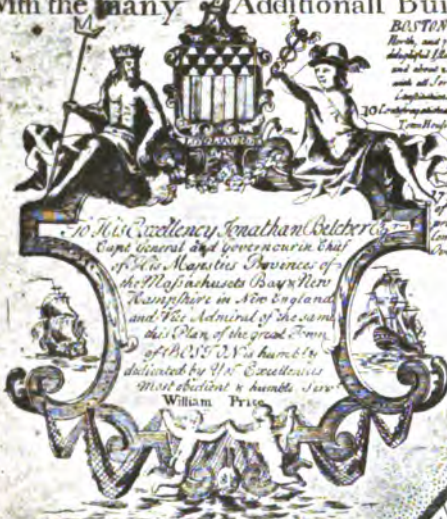 With the many Additionall Buil
BOSTON
North, and
delightful
and about
with
Town House
To His Excellency Jonathan Belcher Esqr.
Capt General and Governour in Chief
of His Majesties Provinces of
the Massachusets Bay & New
Hampshire in New England
and Vice Admiral of the same
this Plan of the great Town
of BOSTON is humbly
dedicated by Yor Excellencies
most obedient & humble servt
William Price